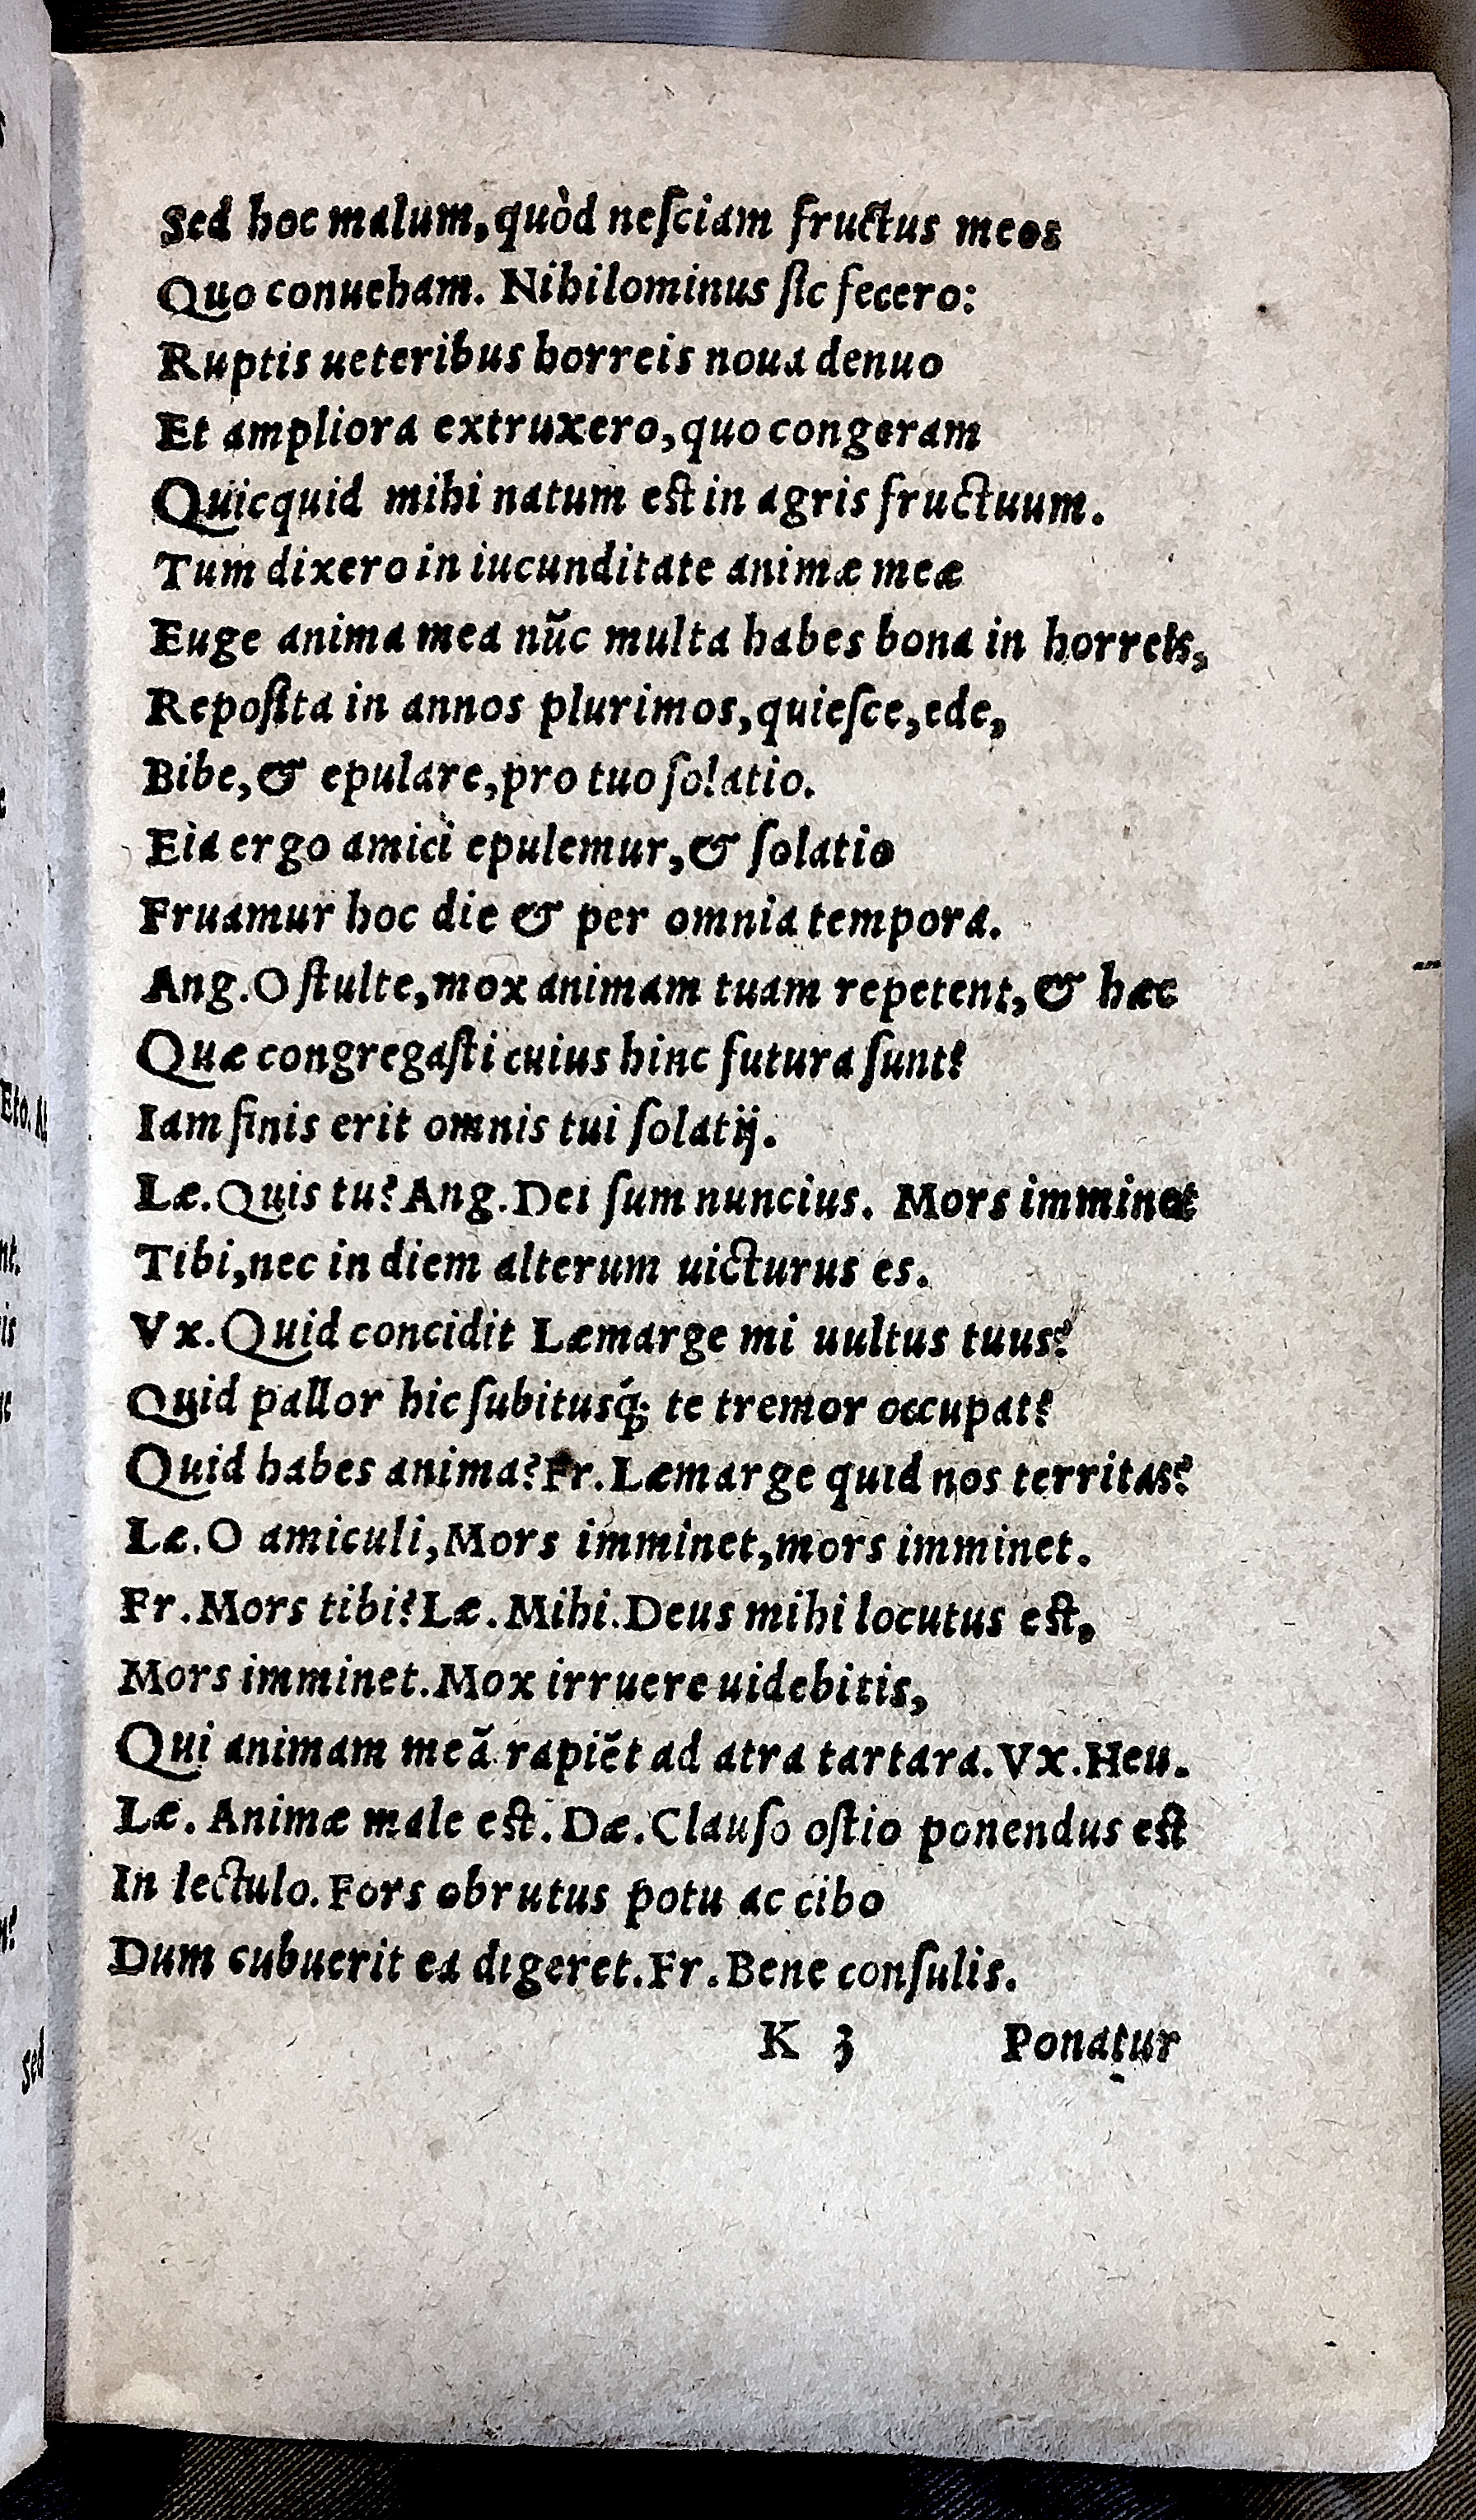 Sed hoc malum, quòd neſciam fructus meos
Quo conueham. Nihilominus ſic fecero:
Ruptis ueteribus horreis noua denuo
Et ampliora extruxero, quo congeram
Quicquid mihi natum eſt in agris fructuum.
Tum dixero in iucunditate animæ meæ
Euge anima mea nũc multa habes bona in horreis,
Repoſita in annos plurimos, quieſce, ede,
Bibe, & epulare, pro tuo ſolatio.
Eia ergo amici epulemur, & ſolatio
Fruamur hoc die & per omnia tempora.
Ang. O ſtulte, mox animam tuam repetent, & hæc
Quæ congregaſti cuius hinc futura ſunt?
Iam finis erit omnis tui ſolatij.
Læ. Quis tu? Ang. Dei ſum nuncius. Mors imminet
Tibi, nec in diem alterum uicturus es.
Vx. Quid concidit Læmarge mi uultus tuus?
Quid pallor hic ſubitusq́; te tremor occupat?
Quid habes anima? Fr. Læmarge quid nos territas?
Læ. O amiculi, Mors imminet, mors imminet.
Fr. Mors tibi? Læ. Mihi. Deus mihi locutus eſt,
Mors imminet. Mox irruere uidebitis,
Qui animam meã rapiẽt ad atra tartara. Vx. Heu.
Læ. Animæ male eſt. Dæ. Clauſo oſtio ponendus eſt
In lectulo. Fors obrutus potu ac cibo
Dum cubuerit ea digeret. Fr. Bene conſulis.
K 3 Ponatur